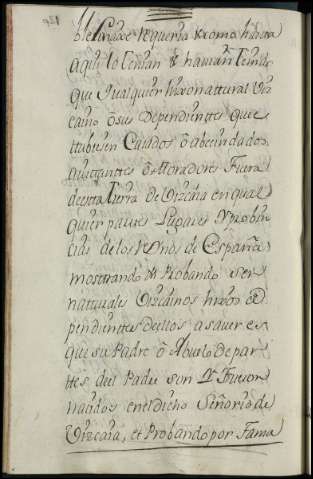 aqui lo tenian & havian tenido
que qualquier hixo natural Viz
caino ó sus dependientes que
stubiesen Casados ó abecindados
havitantes ó Moradores Fuera
de esta tierra de Vizcaia en qual
quier partes Lugares y Probin
cias de los rynos de España
mostrando & Probando ser
naturales Vizcainos hixos ó de
pendientes dellos a saver es
que su Padre ó Abuelo de par
ttes del Padre son & Fueron
nacidos en el dicho Señorio de
Vizcaia, et Probando por Fama